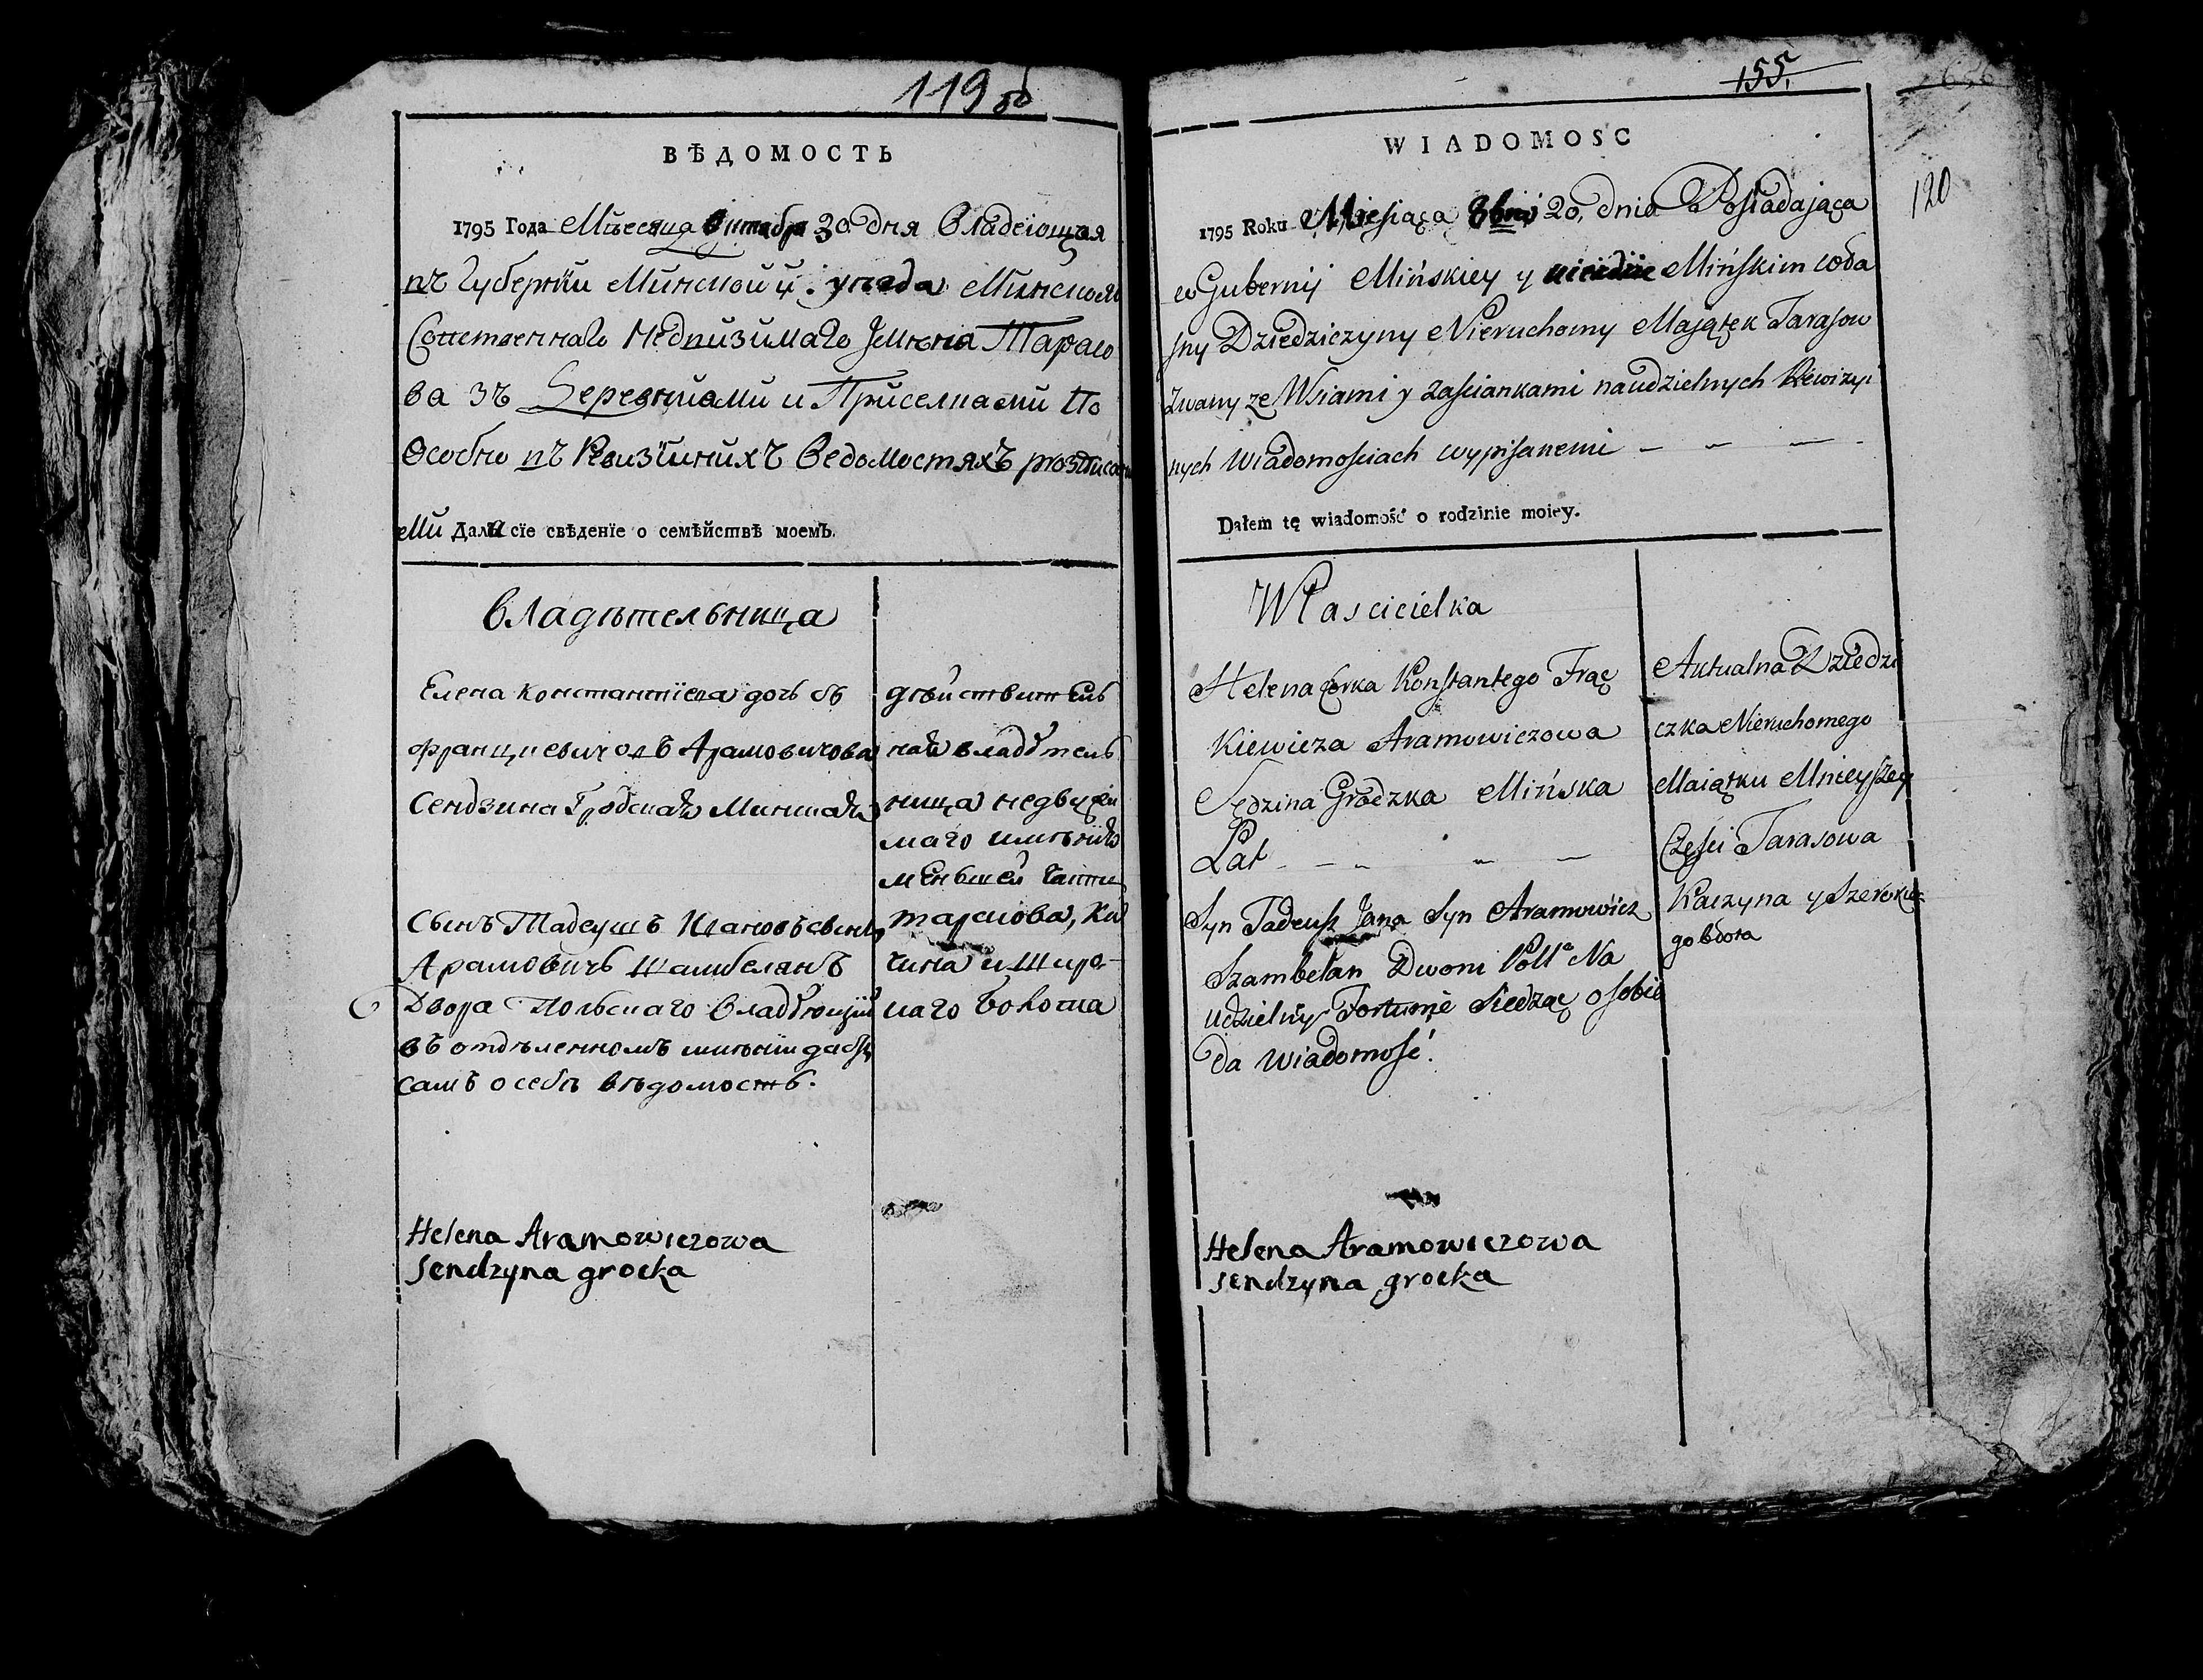 119 об
ВѢДОМОСТЬ
1795 Года Мѣесяца Октабря 30 дня Владеющая
пъ Губернïи Минской и уезда Минского
Сопственнаго Недвизимаго Имѣнïа Тарасо
ва зъ Деревнйами и Приселками По
Особно пъ Ревизïйнихъ Ведомостяхъ розписани
ми Дала сïе свѣденïе о семѣйствѣ моемъ.
Владѣтельница
Елена константïева дочь съ
францкевичовъ Арамовичова
Сендзина Гродская Минская
Сынъ Тадеушъ Ивановъ сынъ
Арамовичъ Шамбеланъ
Двора Польскаго Владѣющïй
въ отдѣленномъ имѣнïи дастъ
самъ о себѣ вѣдомость.
дѣйствитель
ная владѣтель
ница недвижи
маго имѣнïя
меньшей части
тарасова, Ка
чина и Широ-
каго Болота
Helena Aramowiczowa
sendzyna grocka
155.
120
WIADOMOSC
1795 Roku Miesiąca 8bra 20, dnia Posiadaiąca
w Gubernij Mińskiey y uieździe Mińskim włda
sny Dziedziczyny Nieruchomy Maiątek Tarasow
Zwany ze Wsiami y zasciankami naudzielnych Rewizyi
nych Wiadomosciach wypisanemi — — — -
Dałem tę wiadomość o rodzinie moiey.
Włascicielka
Helena Corka Konstantego Frąc
kiewicza Aramowiczowa
Sędzina Grodzka Mińska
Lat - - - - -
Syn Tadeusz Jana Syn Aramowicz
Szambelan Dworu Poll° Na
udzielny Fortunie Siedząc osobie
da wiadomość.
Aktualna Dziedzi
czka Nieruchomego
Maiątku Mnieyszey
Częsci Tarasowa
Kaczyna y Szerokie
go błota
Helena Aramowiczowa
sendzyna grocka